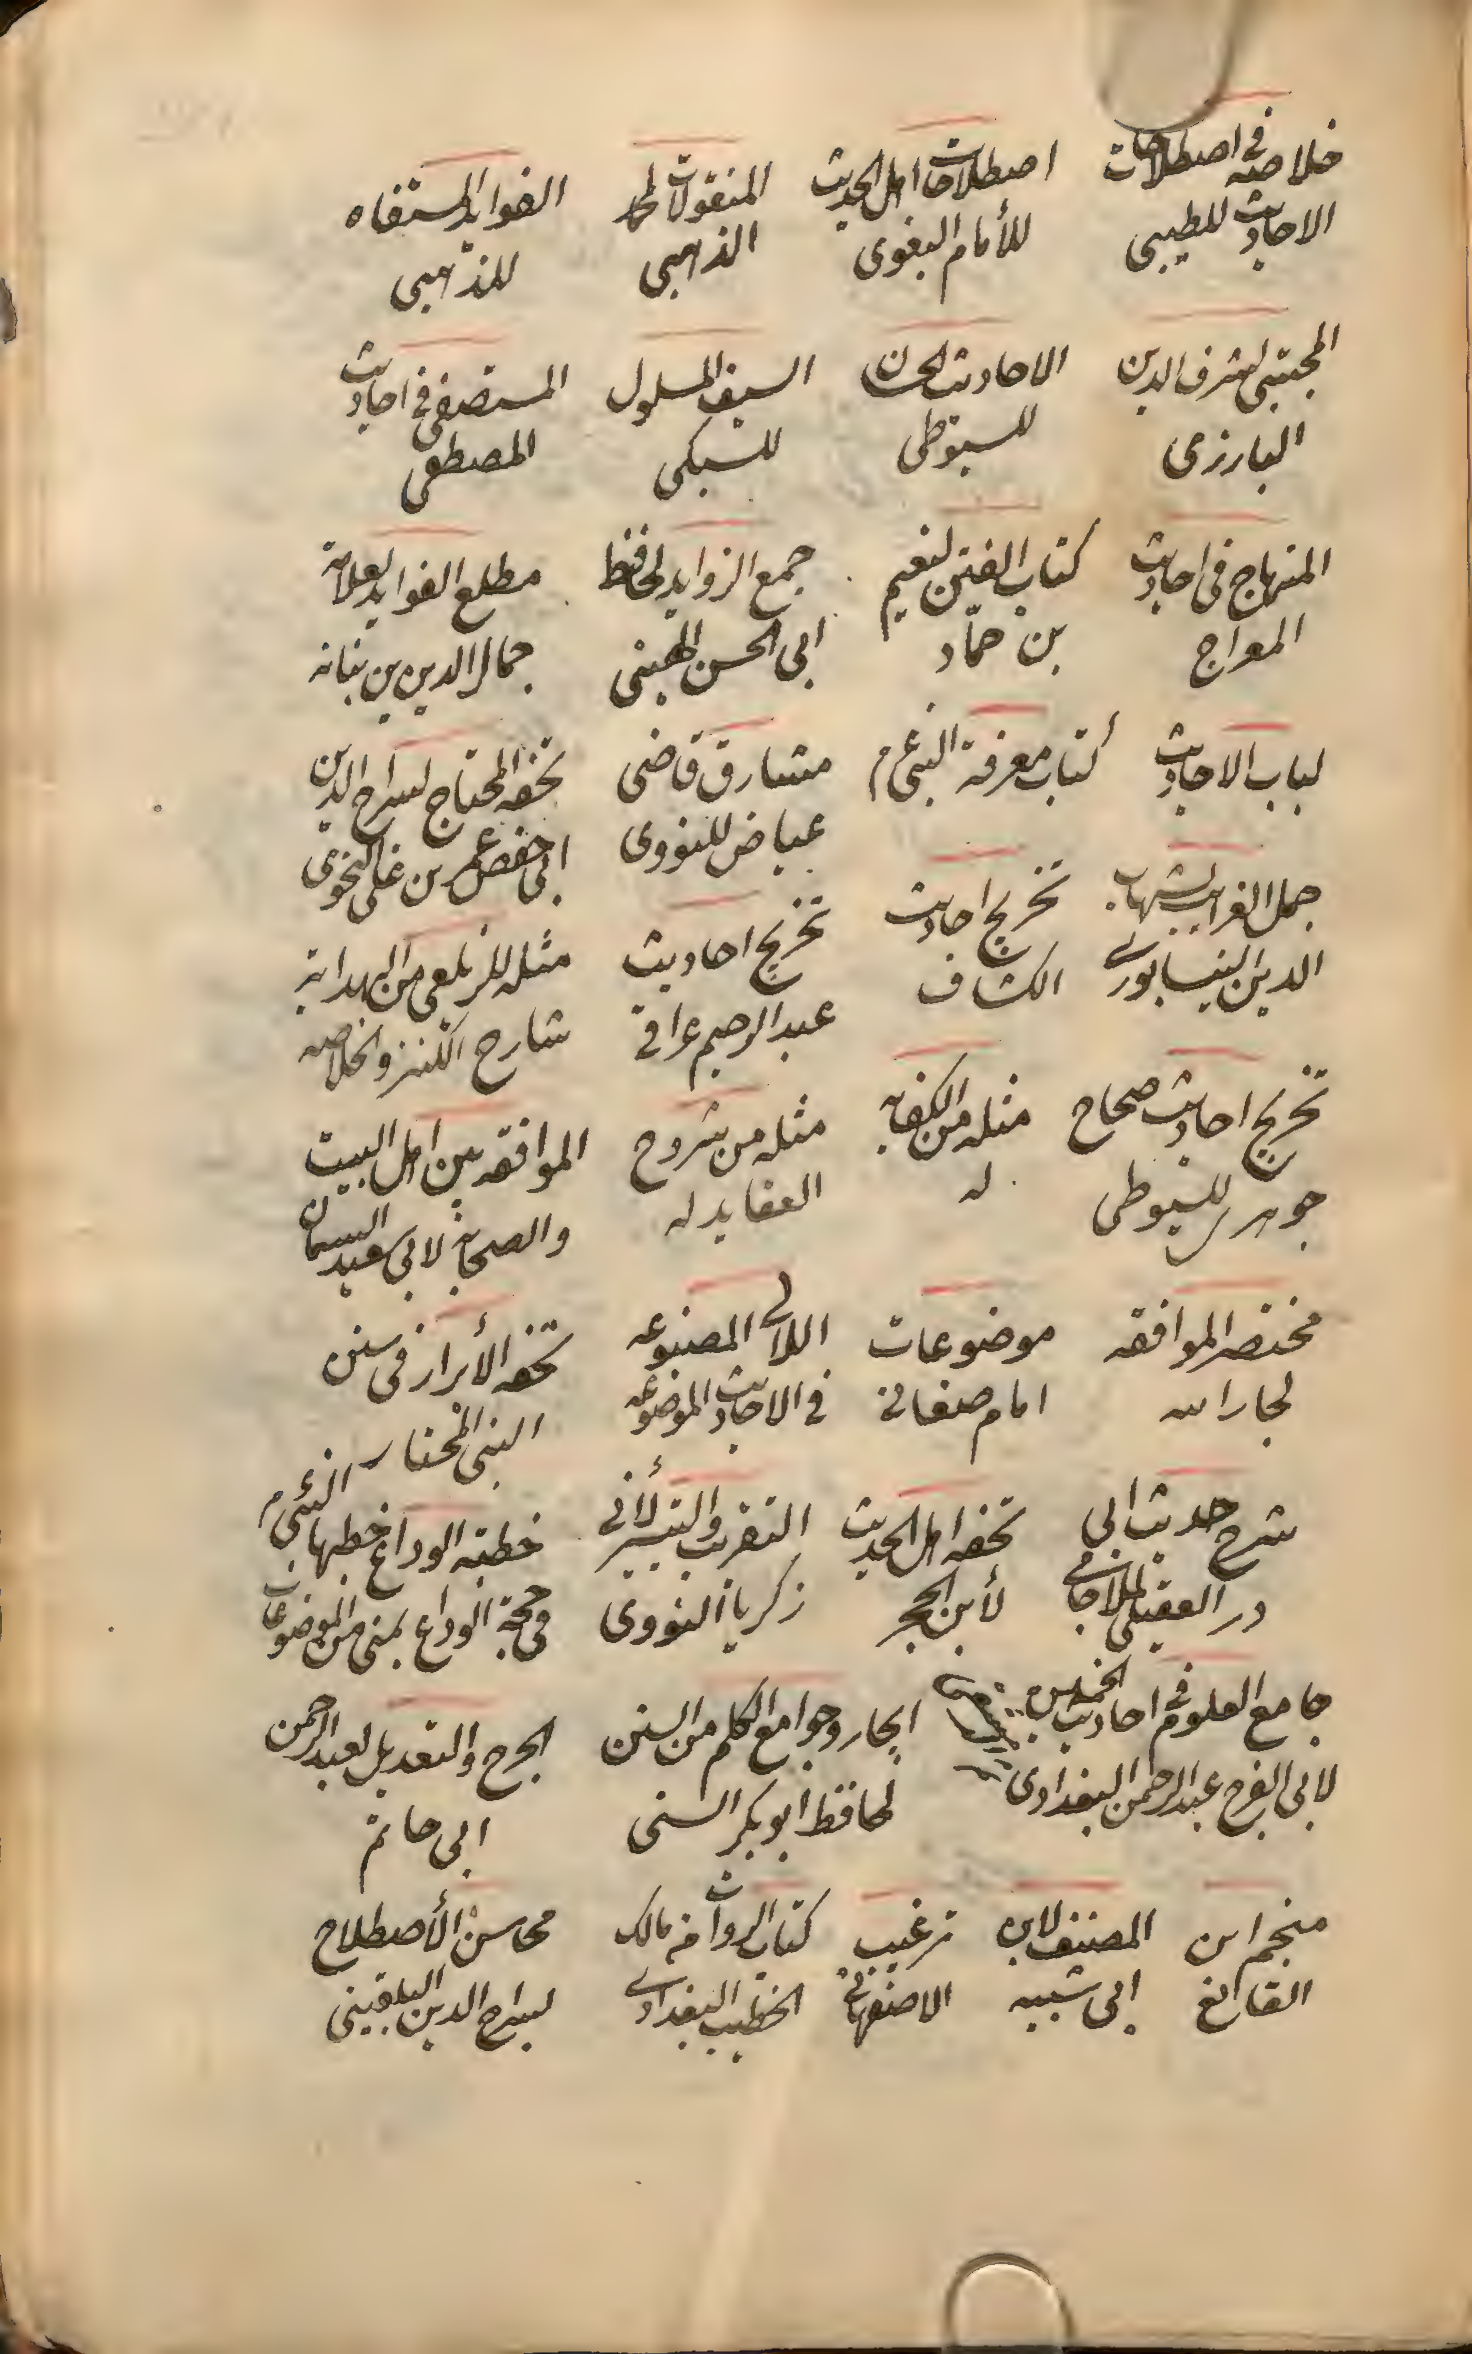 خلاصة فى اصطلاحات
الاحاديث للطيبى
اصطلاحات اهل الحديث
للأمام البغوى
المنقولات لمحمد
الذهبى
الفوايد المستفاه
للذهبى
المجتبى لشرف الدين
البارزى
الاحاديث الحسان
للسيوطى
السيف المسلول
للسبكى
المستصفى فى احاديث
المصطفى
المنهاج فى احاديث
المعراج
كتاب الفتن لنعيم
بن حمّاد
جمع الزوايد لحافظ
ابى الحسن الهيثمى
مطلع الفوايد لعلامة
جمال الدين بن نباته
لباب الاحاديث
كتاب معرفة النبى عم
مشارق قاضى
عياض للنووى
تحفه المحتاج لسراج الدين
ابى حفص عمر بن على النحوى
جمل الغرايب لشهاب
الدين النيسابورى
تخريج احاديث
الكشاف
تخريج احاديث
عبد الرحيم عراقى
مثله للزيلعى من الهداية
شارح الكنز والخلاصه
تخريج احاديث صحاح
جوهرى للسيوطى
مثله من الكفايه
له
مثله من شروح
العقايد له
الموافقه بين اهل البيت
والصحابة لابى سعيد السمان
مختصر الموافقه
لجار الله
موضوعات
امام صغانى
اللالى المصنوعه
فى الاحاديث الموضوعه
تحفه الأبرار فى سنن
النبى المختار
شرح حديث ابى
در العقيلى لملا جامى
تحفه اهل الحديث
لأبن الحجر
التقريب والتيسير لأبى
زكريا النووى
خطبته الوداع خطبها النبى عم
فى حجة الوداع بمنى من الموضوعات
جامع العلوم فى احاديث الخمسين
لابى الفرج عبد الرحمن البغدادى
ايجاز وجوامع الكلم من السنن
لحافظ ابو بكر السنى
الجرح والتعديل لعبد الرحمن
ابى حاتم
منجم ابن
القانع
المصنف لابن
ابى شيبه
ترغيب
الاصفهانى
كتاب الرواة من مالك
الخطيب البغدادى
محاسن الأصطلاح
لسراج الدين البلقينى